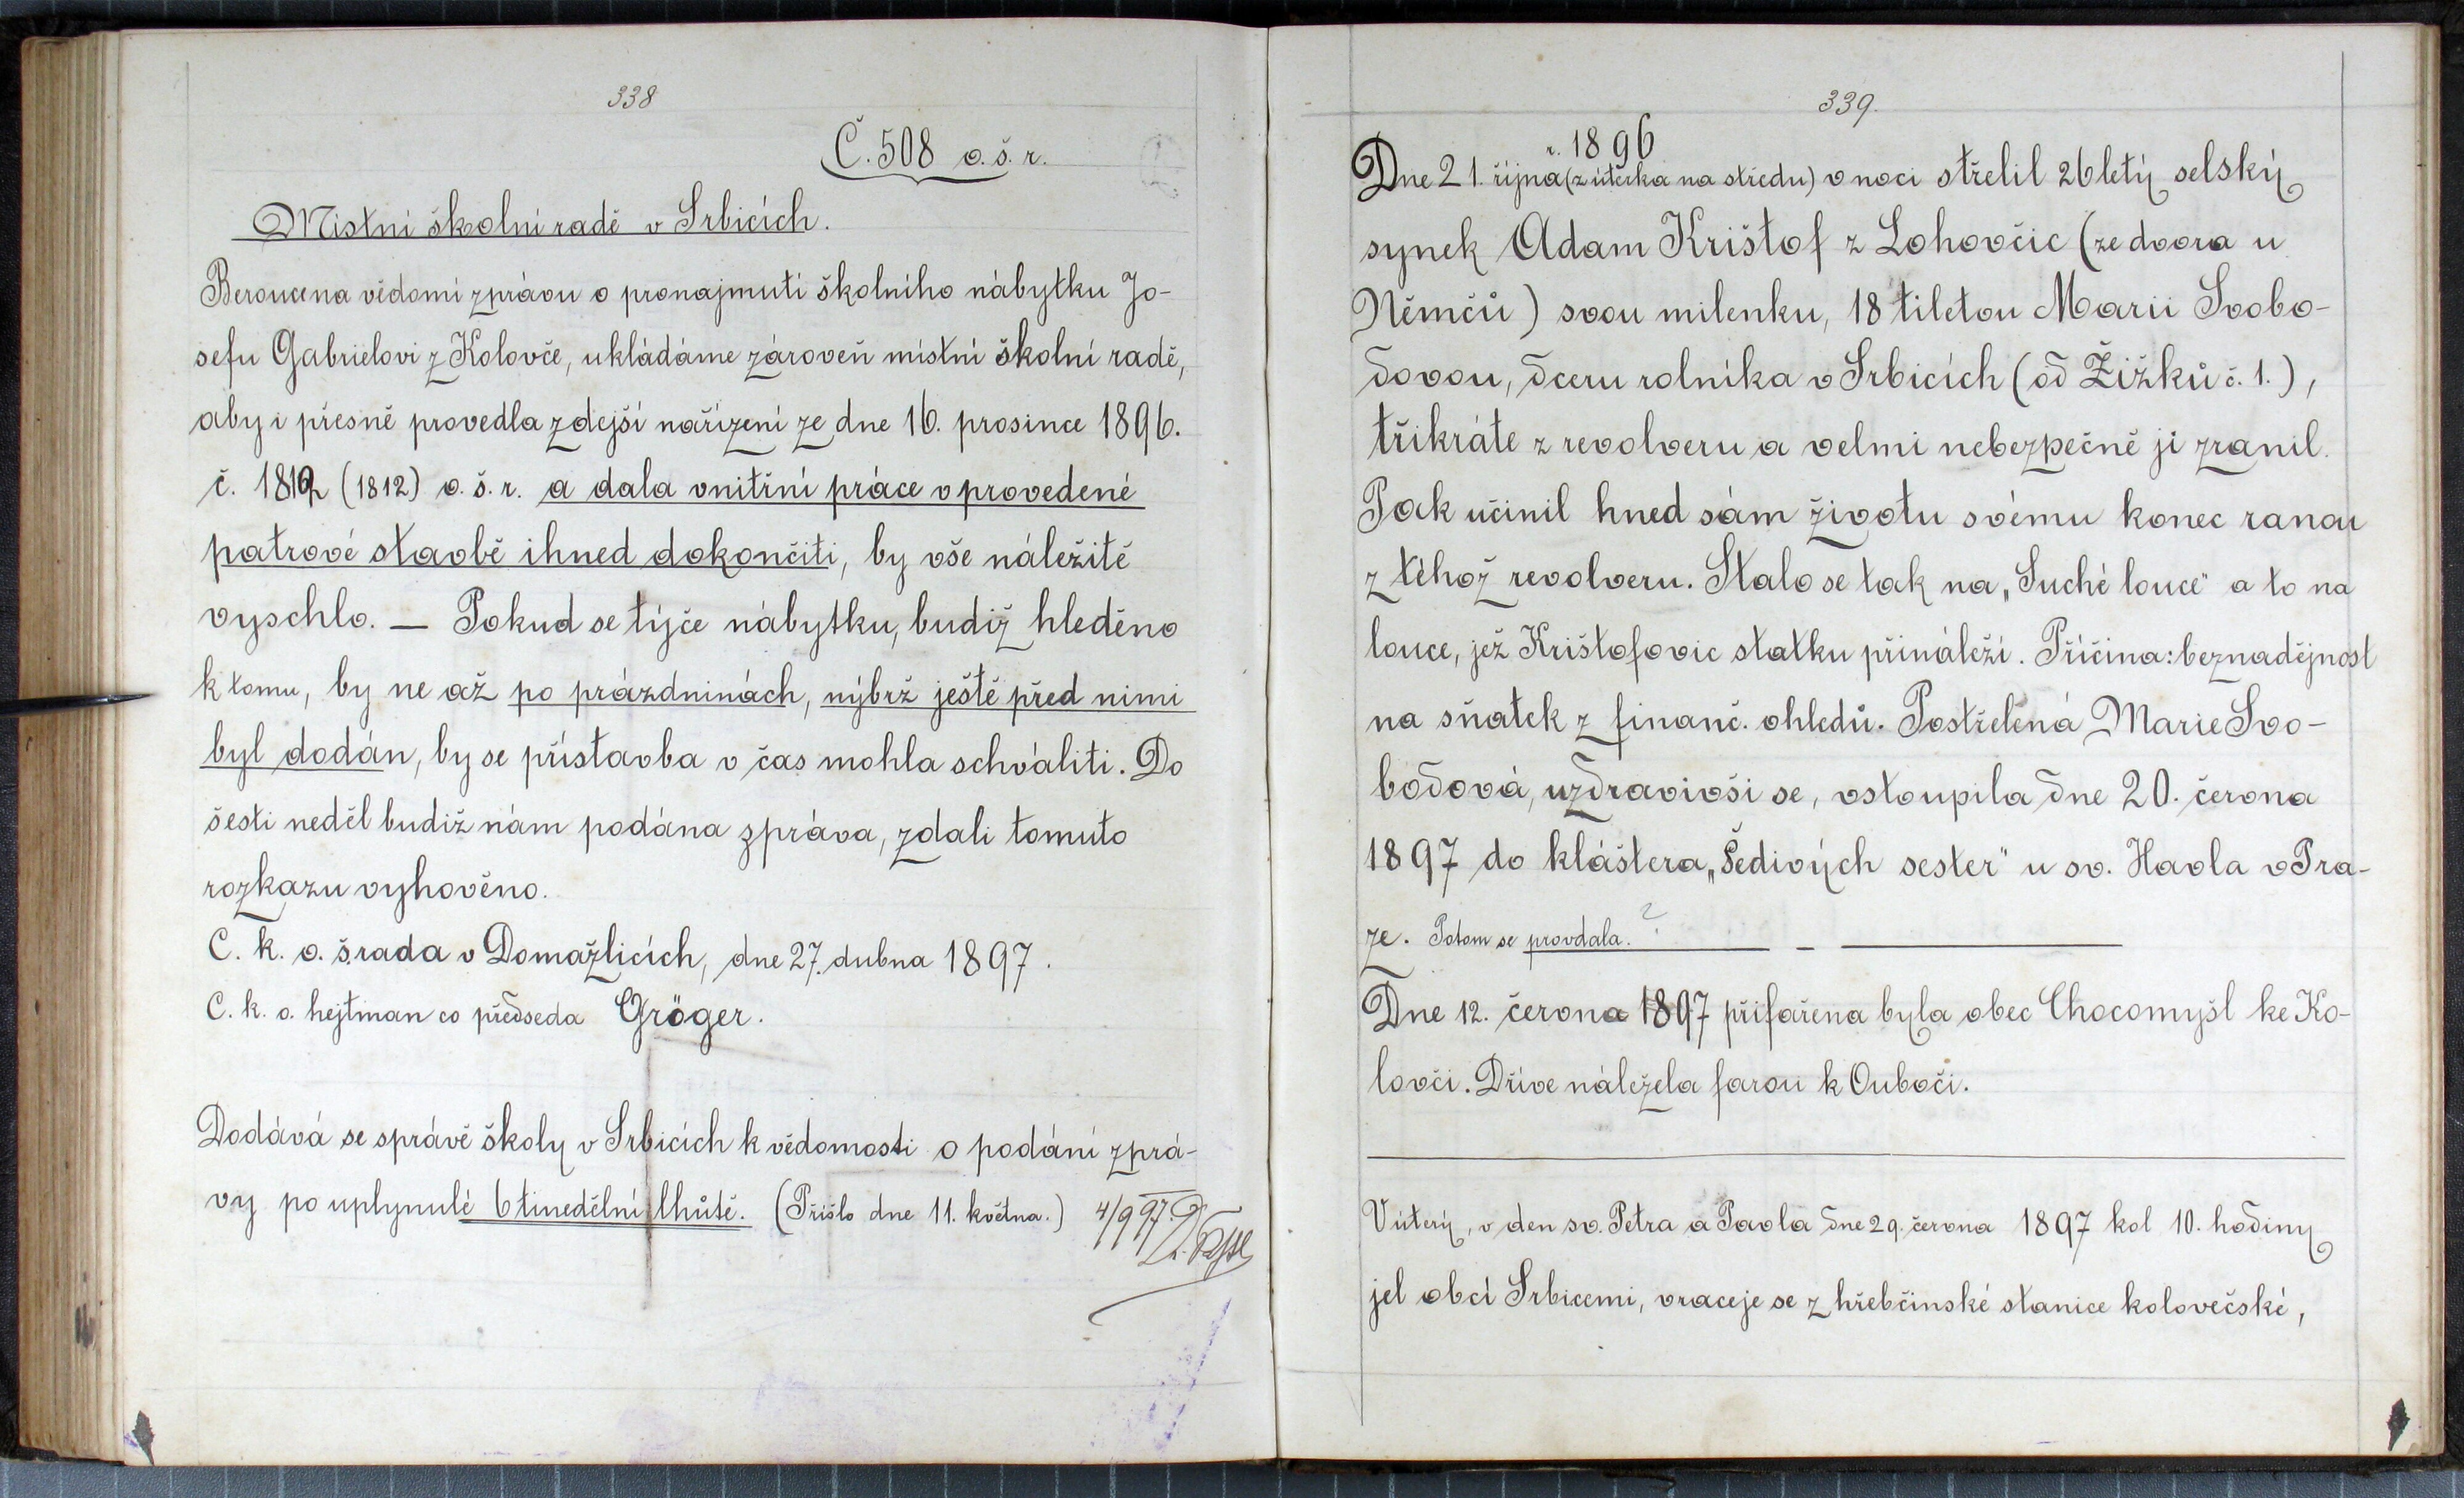 338
Č. 508 o. š. r.
Místní školní radě v Srbicích.
Berouce na vědomí zprávu o pronajmutí školního nábytku Jo-
sefu Gabrielovi z Kolovče, ukládáme zároveň místní školní radě,
aby i přesně provedla zdejší nařízení ze dne 16. prosince 1896.
č. 1812 (1812) o. š. r. a dala vnitřní práce v provedené
patrové stavbě ihned dokončiti, by vše náležitě
vyschlo. — Pokud se týče nábytku, budiž hleděno
k tomu, by ne až po prázdninách, nýbrž ještě před nimi
byl dodán, by se přístavba v čas mohla schváliti. Do
šesti neděl budiž nám podána zpráva, zdali tomuto
rozkazu vyhověno.
C. k. o. š. rada v Domažlicích, dne 27. dubna 1897.
C. k. o. hejtman co předseda Gröger.
Dodává se správě školy v Srbicích k vědomosti o podání zprá-
vy po uplynulé 6tinedělní lhůtě. (Přišlo dne 11. května.) 4/9 97.
339.
r. 1896
Dne 21. října (z úterka na středu) v noci střelil 26letý selský
synek Adam Krištof z Lohovčic (ze dvora u
Němčů) svou milenku, 18tiletou Marii Svobo-
dovou, dceru rolníka v Srbicích (od Žižků č. 1.),
třikráte z revolveru a velmi nebezpečně ji zranil.
Pak učinil hned sám životu svému konec ranou
z téhož revolveru. Stalo se tak na „Suché louce" a to na
louce, jež Krištofovic statku přináleží. Příčina: beznadějnost
na sňatek z finanč. ohledů. Postřelená Marie Svo-
bodová, uzdravivši se, vstoupila dne 20. června
1897 do kláštera „Šedivých sester" u sv. Havla v Pra-
ze. Potom se provdala. ?
Dne 12. června 1897 přifařena byla obec Chocomyšl ke Ko-
lovči. Dříve náležela farou k Ouboči.
V úterý, v den sv. Petra a Pavla dne 29. června 1897 kol 10. hodiny
jel obcí Srbicemi, vraceje se z hřebčinské stanice kolovečské,